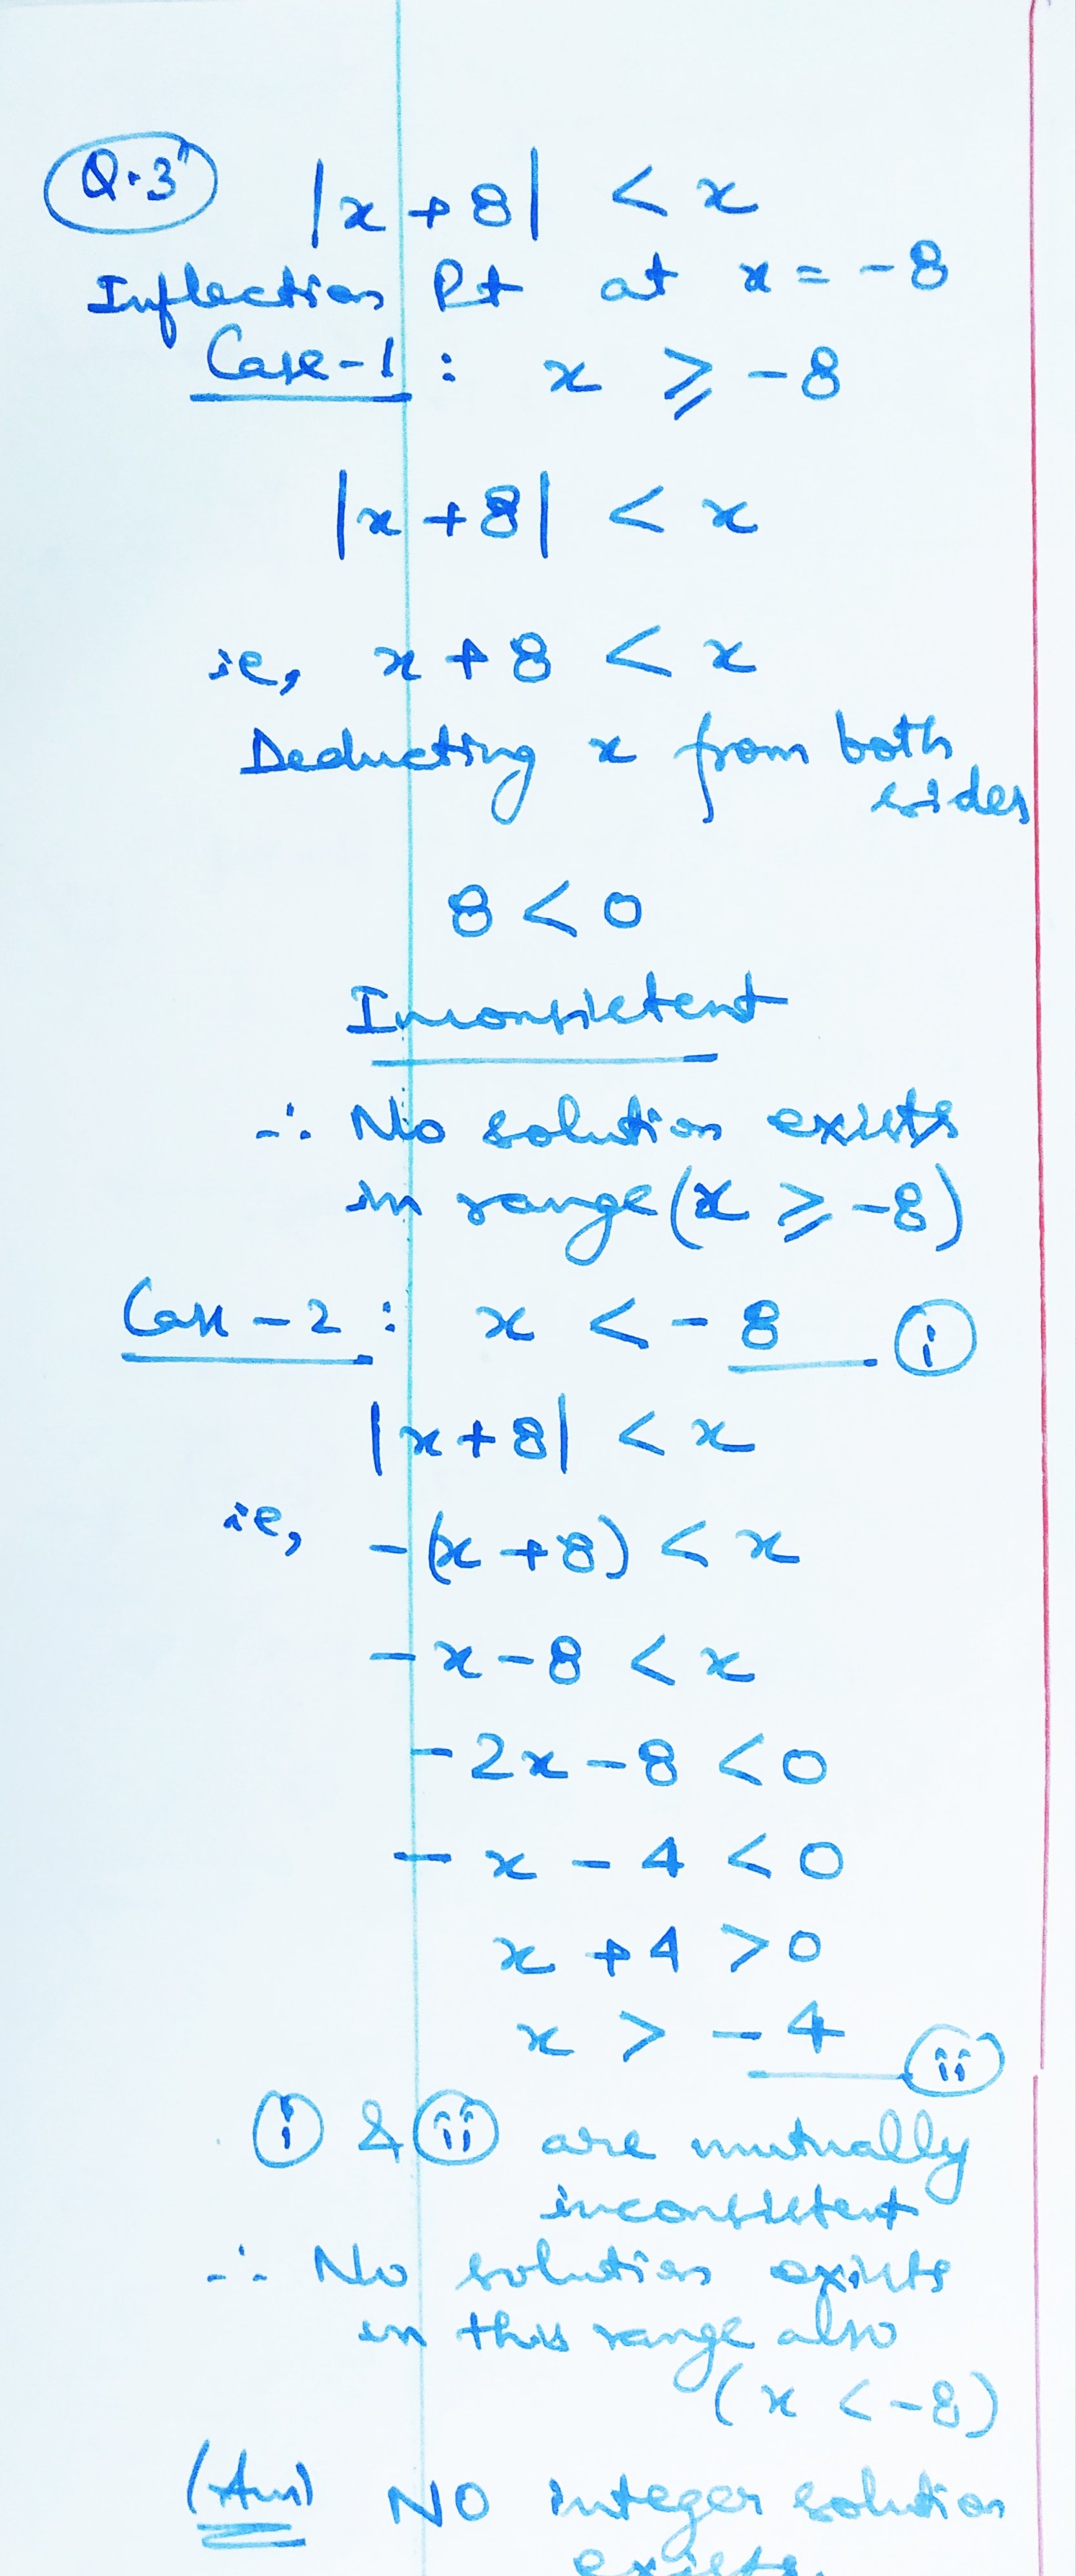 Q.3 |x + 8| < x
Inflection Pt at x = -8
Case-1 : x ⩾ -8
|x + 8| < x
ie, x + 8 < x
Deducting x from both
sides
8 < 0
Inconsistent
∴ No solution exists
in range (x ⩾ -8)
Case - 2 : x < - 8 (i)
|x + 8| < x
ie, -(x + 8) < x
-x - 8 < x
- 2x - 8 < 0
- x - 4 < 0
x + 4 > 0
x > - 4 (ii)
(i) & (ii) are mutually
inconsistent
∴ No solution exists
in this range also
(x < -8)
(Ans) NO integer solution
exists.